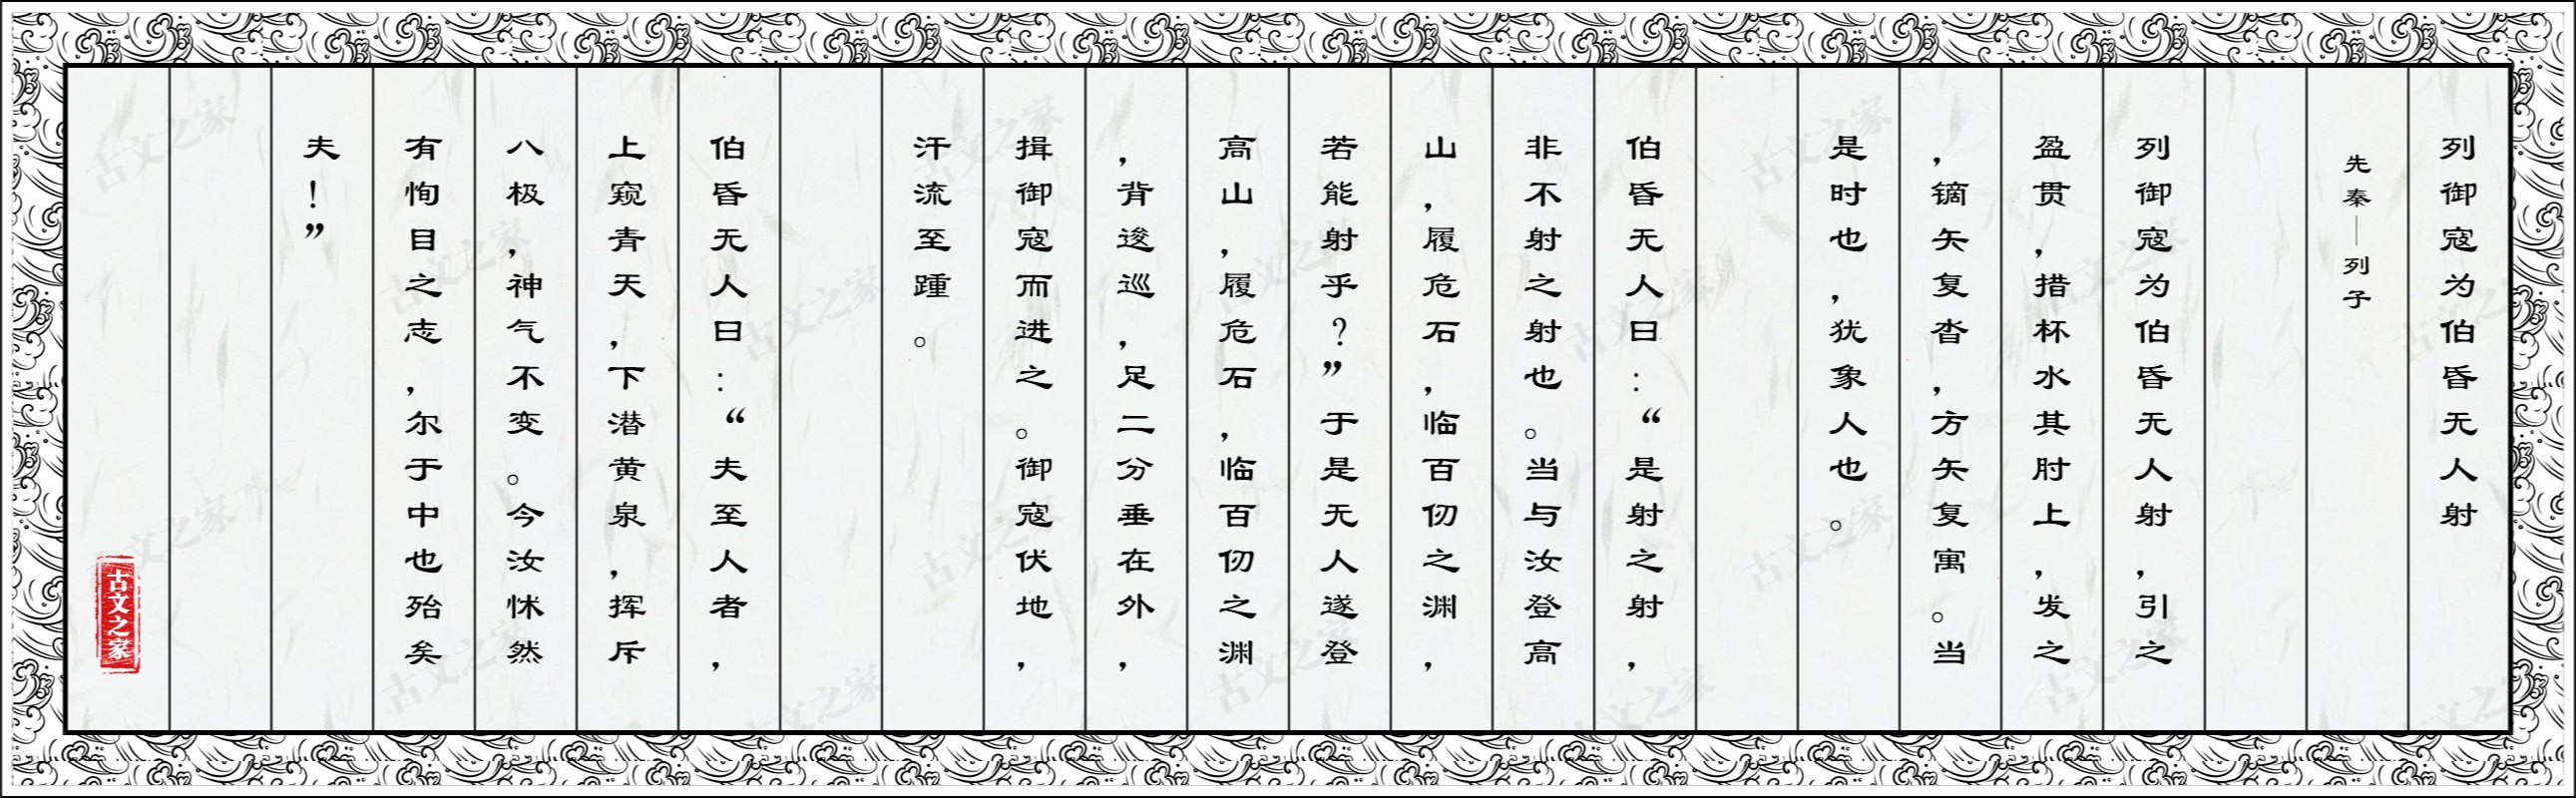 列御寇为伯昏无人射
先秦—列子
列御寇为伯昏无人射，引之
盈贯，措杯水其肘上，发之
，镝矢复沓，方矢复寓。当
是时也，犹象人也。
伯昏无人曰：“是射之射，
非不射之射也。当与汝登高
山，履危石，临百仞之渊，
若能射乎？”于是无人遂登
高山，履危石，临百仞之渊
，背逡巡，足二分垂在外，
揖御寇而进之。御寇伏地，
汗流至踵。
伯昏无人曰：“夫至人者，
上窥青天，下潜黄泉，挥斥
八极，神气不变。今汝怵然
有恂目之志，尔于中也殆矣
夫！”
古文之家